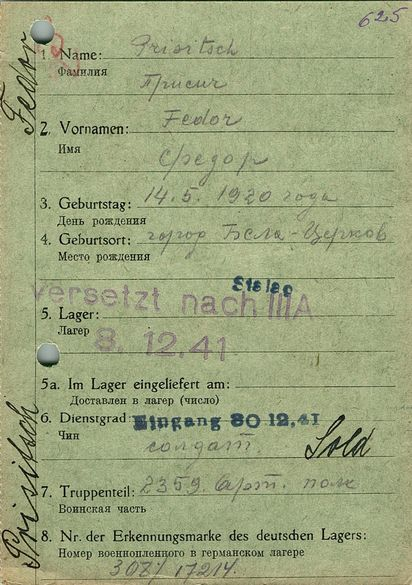 625
Fedor
1. Name: Prisitsch
Фамилия
Присич
2. Vornamen: Fedor
Имя
Федор
3. Geburtstag: 14.5.1920 года
День рождения
4. Geburtsort: город Бела-Церков
Место рождения
Stalag
versetzt nach IIIA
5. Lager:
Лагерь
8. 12. 41
5a. Im Lager eingeliefert am:
Доставлен в лагерь (число)
6. Dienstgrad: Eingang 30 12. 41
Чин
солдат. Sold
Prisitsch
7. Truppenteil: 2359. арт. полк
Воинская часть
8. Nr. der Erkennungsmarke des deutschen Lagers:
Номер военнопленного в германском лагере
17214.